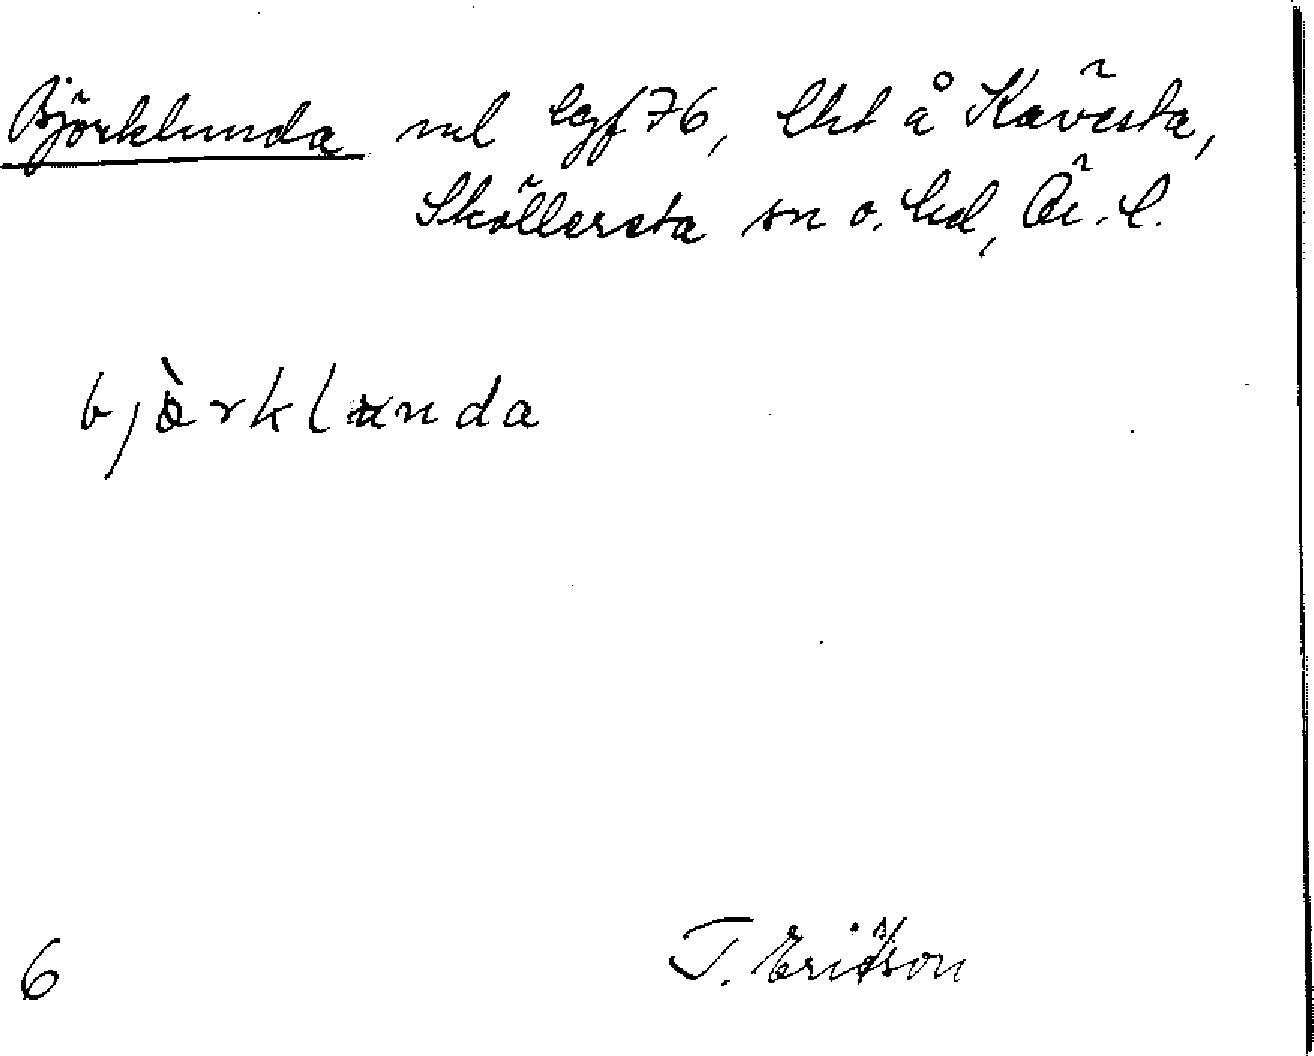 Björklunda ml lgf 76, lht å Kävesta,
Sköllersta sn o. hd, Ör. l.
bjὰrklunda
6
T. Ericsson